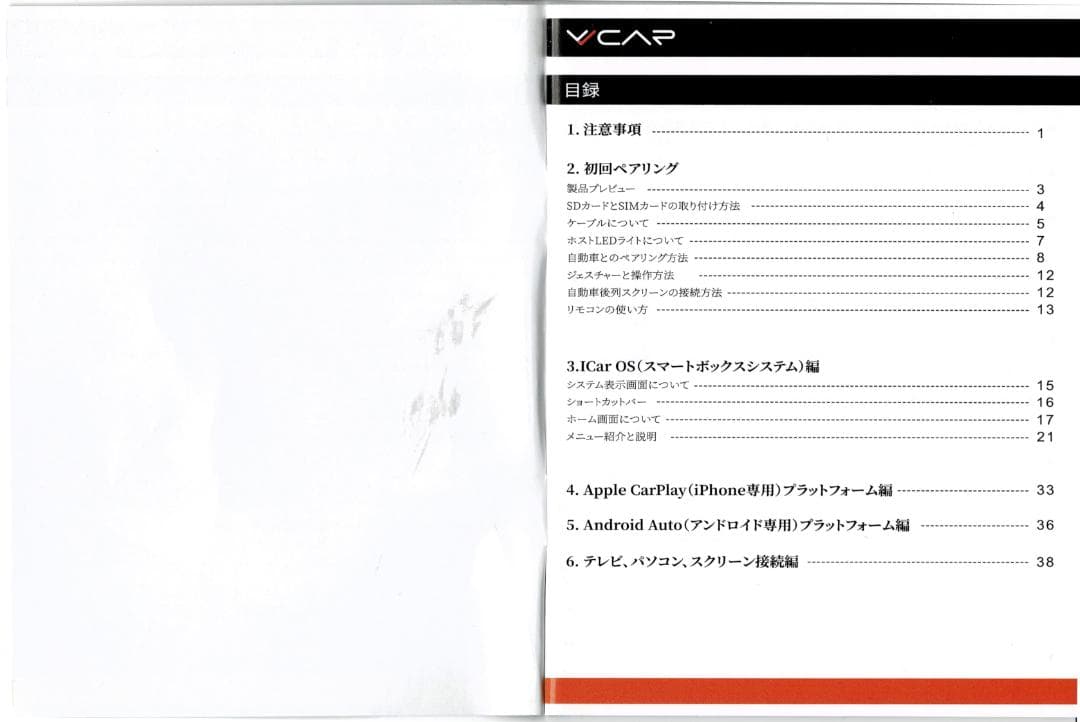 VVCAR
目録
1. 注意事項 1
2. 初回ペアリング
製品プレビュー 3
SDカードとSIMカードの取り付け方法 4
ケーブルについて 5
ホストLEDライトについて 7
自動車とのペアリング方法 8
ジェスチャーと操作方法 12
自動車後列スクリーンの接続方法 12
リモコンの使い方 13
3.ICar OS（スマートボックスシステム）編
システム表示画面について 15
ショートカットバー 16
ホーム画面について 17
メニュー紹介と説明 21
4. Apple CarPlay（iPhone専用）プラットフォーム編 33
5. Android Auto（アンドロイド専用）プラットフォーム編 36
6. テレビ、パソコン、スクリーン接続編 38